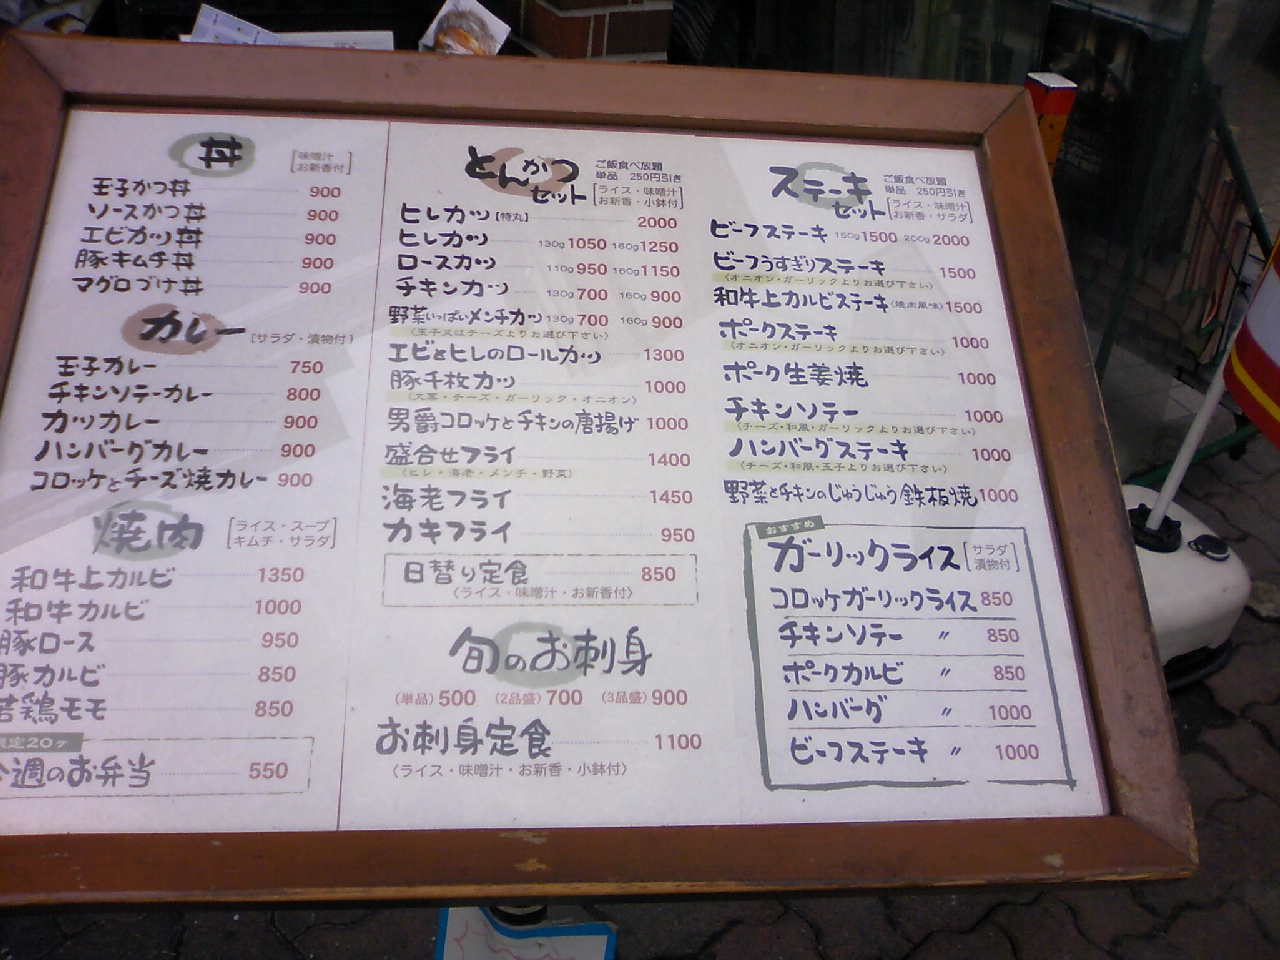 丼
[味噌汁
お新香付]
玉子かつ丼 900
ソースかつ丼 900
エビカツ丼 900
豚キムチ丼 900
マグロづけ丼 900
カレー [サラダ・漬物付]
玉子カレー 750
チキンソテーカレー 800
カツカレー 900
ハンバーグカレー 900
コロッケとチーズ焼カレー 900
焼肉
[ライス・スープ
キムチ・サラダ]
和牛上カルビ 1350
和牛カルビ 1000
豚ロース 950
豚カルビ 850
若鶏モモ 850
限定20ヶ
今週のお弁当 550
とんかつ
セット
ご飯食べ放題
単品 250円引き
[ライス・味噌汁
お新香・小鉢付]
ヒレカツ【特丸】 2000
ヒレカツ 130g1050 160g1250
ロースカツ 110g950 160g1150
チキンカツ 130g700 160g900
野菜いっぱいメンチカツ 130g700 160g900
〈玉子又はチーズよりお選び下さい〉
エビとヒレのロールカツ 1300
豚千枚カツ 1000
〈大葉・チーズ・ガーリック・オニオン〉
男爵コロッケとチキンの唐揚げ 1000
盛合せフライ 1400
〈ヒレ・海老・メンチ・野菜〉
海老フライ 1450
カキフライ 950
日替り定食 850
〈ライス・味噌汁・お新香付〉
旬のお刺身
(単品)500 (2品盛)700 (3品盛)900
お刺身定食 1100
〈ライス・味噌汁・お新香・小鉢付〉
ステーキ
セット
ご飯食べ放題
単品 250円引き
[ライス・味噌汁
お新香・サラダ]
ビーフステーキ 150g1500 200g2000
ビーフうすぎりステーキ 1500
〈オニオン・ガーリックよりお選び下さい〉
和牛上カルビステーキ〈焼肉風味〉1500
ポークステーキ 1000
〈オニオン・ガーリックよりお選び下さい〉
ポーク生姜焼 1000
チキンソテー 1000
〈チーズ・和風・ガーリックよりお選び下さい〉
ハンバーグステーキ 1000
〈チーズ・和風・玉子よりお選び下さい〉
野菜とチキンのじゅうじゅう鉄板焼 1000
おすすめ
ガーリックライス
[サラダ
漬物付]
コロッケガーリックライス 850
チキンソテー 〃 850
ポークカルビ 〃 850
ハンバーグ 〃 1000
ビーフステーキ 〃 1000